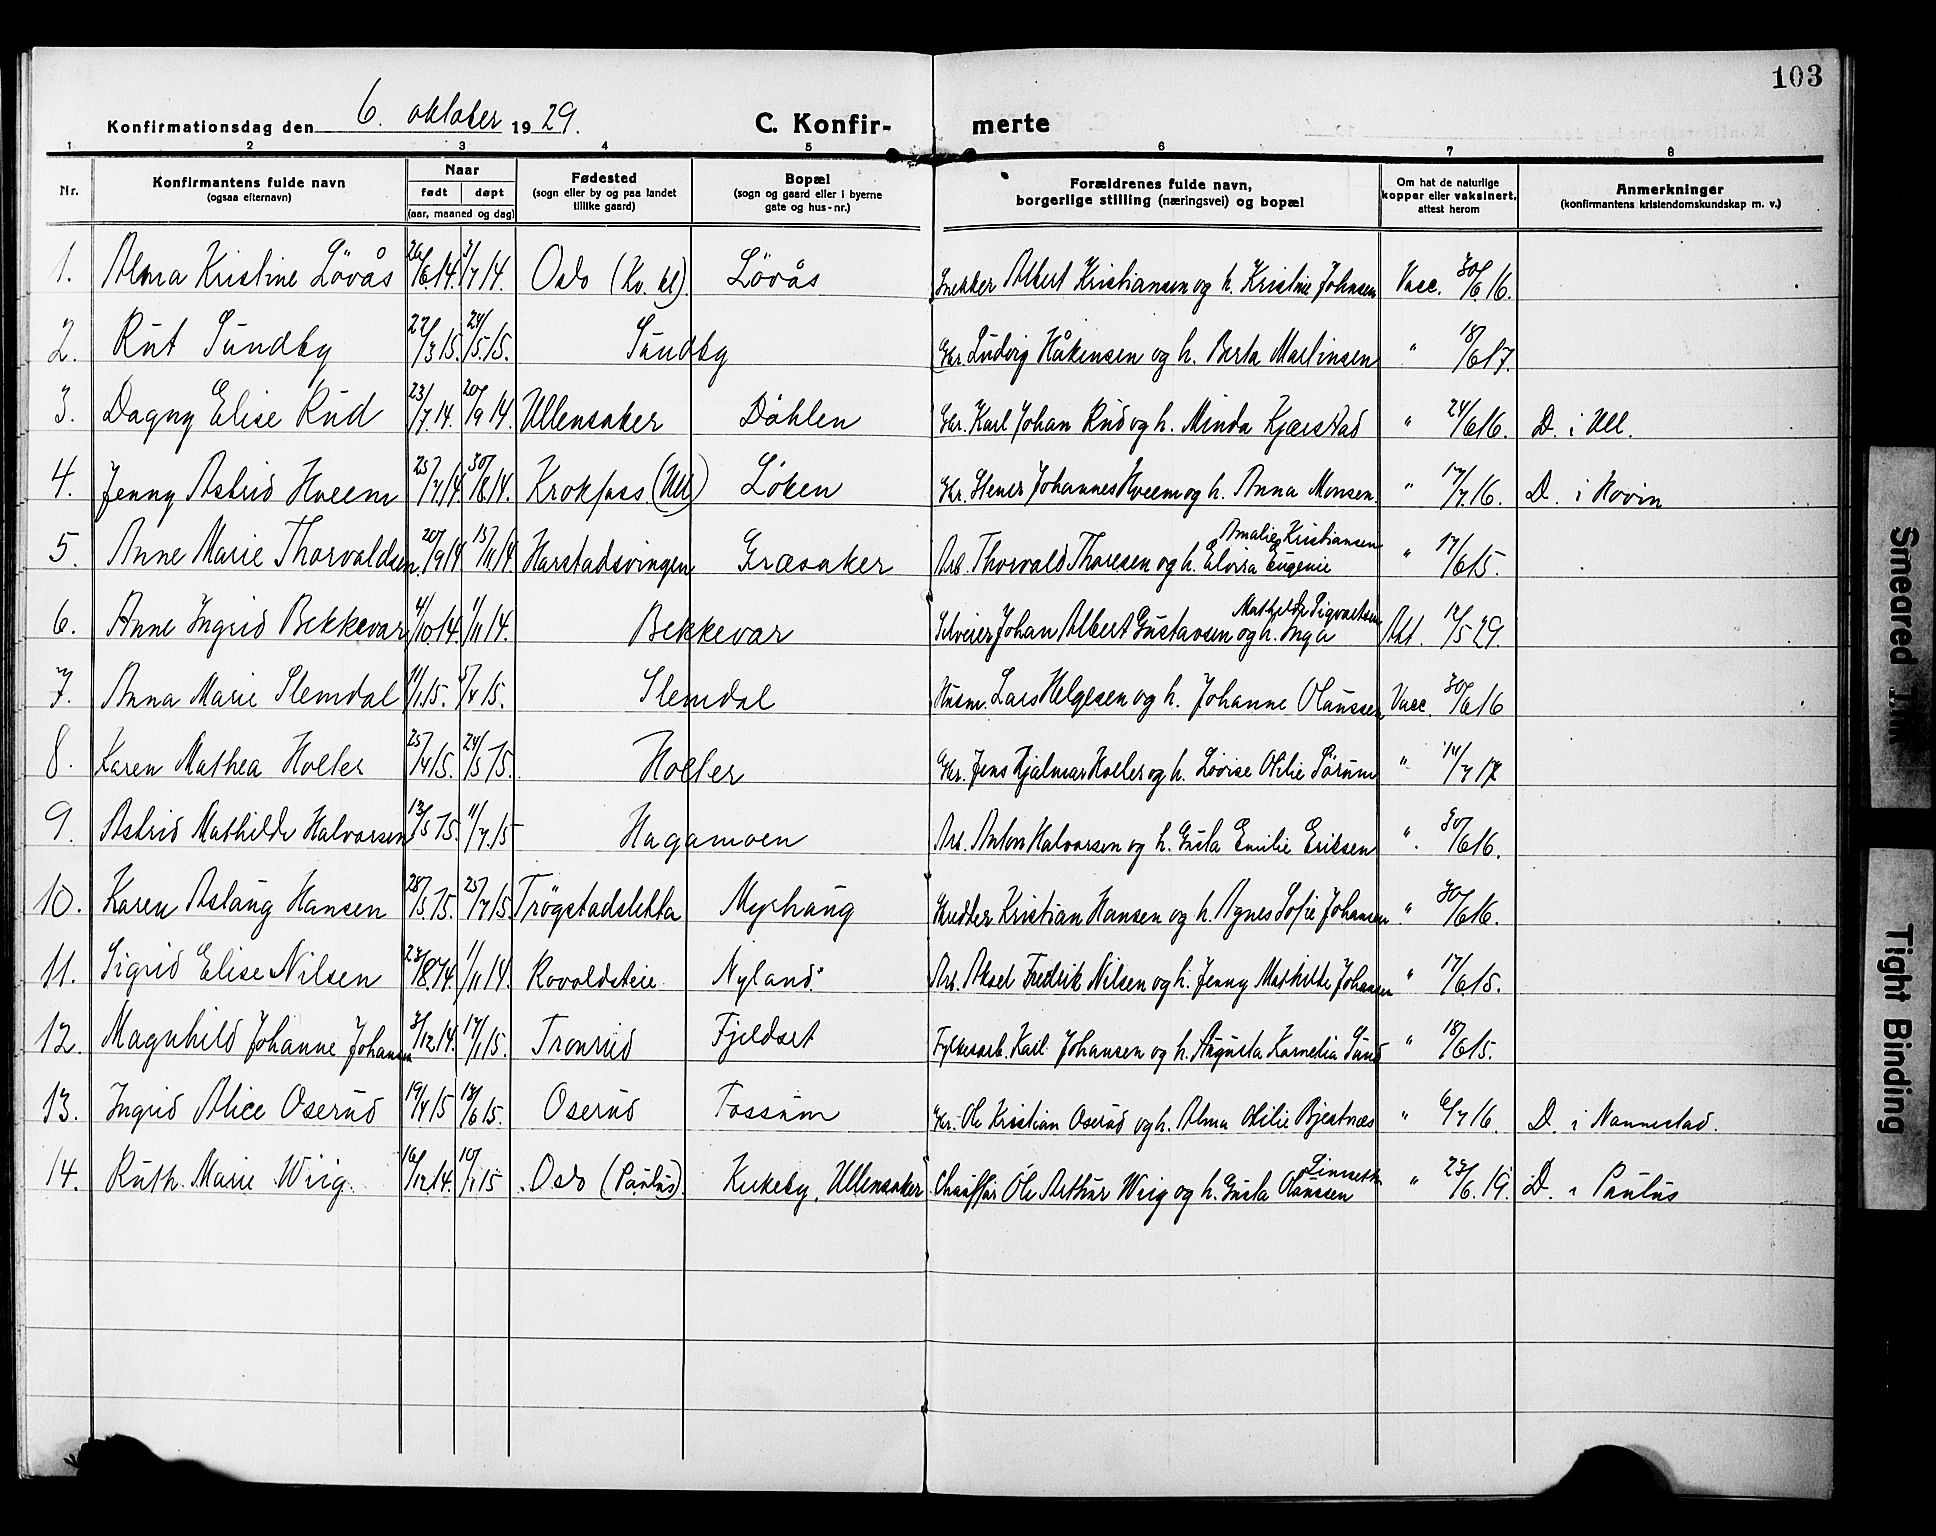 103
Konfirmationsdag den 6. oktober 1929. C. Konfir- merte
1 2 3 4 5 6 7 8
Nr. Konfirmantens fulde navn (ogsaa efternavn) Naar født døpt (aar, maaned og dag) Fødested (sogn eller by og paa landet tillike gaard) Bopæl (sogn og gaard eller i byerne gate og hus-nr.) Forældrenes fulde navn, borgerlige stilling (næringsvei) og bopæl Om hat de naturlige kopper eller vaksinert, attest herom Anmerkninger (konfirmantens kristendomskundskap m. v.)
1. Alma Kristine Lövås 26/6.14. 3/7 14. Oslo (Kv. kl). Lövås Snekker Albert Kristiansen og h. Kristine Johnsen Vacc. 30/6 16.
2. Rut Sundby 22/3 15. 24/5.15. Sundby Gbr. Ludvig Håkensen og h. Berta Martinsen " 18/6 17.
3. Dagny Elise Rud 23/7.14. 20/9 14. Ullensaker Dåhlen Gbr. Karl Johan Rud og h. Minda Kjærstad " 24/6 16. D. i Ull.
4. Jenny Astrid Hveem 25/7.14. 30/8 14. Krokfoss (Ull) Löken Gbr. Stener Johannes Hveem og h. Anna Monsen. " 17/7.16. D. i Hovin
5. Anne Marie Thorvaldsen. 20/9 14 15/11 14. Harstadsvingen Græsaker Arb. Thorvald Thoresen og h. Elvira Eugenie Amalie Kristiansen " 17/6 15.
6. Anne Ingrid Bekkevar 4/10.14. 1/11 14. Bekkevar Selveier Johan Albert Gustavsen og h. Inga Mathilde Sigvartsen Att. 12/5 29.
7. Anna Marie Slemdal 11/1.15. 5/4 15. Slemdal Husm. Lars Helgesen og h. Johanne Olaussen Vacc. 30/6 16
8. Karen Mathea Holter 25/4 15. 24/5 15. Holter Gbr. Jens Hjalmar Holter og h. Lovise Otilie Sörum " 14/7 17
9. Astrid Mathilde Halvorsen 13/5 15. 11/7.15 Hagamoen Arb. Anton Halvorsen og h. Gusta Emilie Eriksen " 30/6 16.
10. Karen Aslaug Hansen 28/5.15. 25/7 15. Trögstadsletta Myrhaug Skredder Kristian Hansen og h. Agnes Sofie Johansen " 30/6 16.
11. Sigrid Elise Nilsen 23/8.14. 1/11 14. Rovoldsteie Nyland Arb. Aksel Fredrik Nilsen og h. Jenny Mathilde Johansen " 17/6 15.
12. Magnhild Johanne Johansen 3/12 14. 17/1 15. Tronrud Fjeldset Fylkesarb. Karl Johansen og h. Augusta Kornelia Sund " 18/6 15.
13. Ingrid Alice Oserud 19/4 15 13/6 15. Oserud Fossum Gbr. Ole Kristian Oserud og h. Alma Otilie Bjestnæs " 6/7 16. D. i Nannestad.
14. Ruth Marie Wiig 16/12 14. 10/1 15 Oslo (Paulus). Kirkeby, Ullensaker Chauffør Ole Arthur Wiig og h. Gusta Olaussen Linnseth " 23/6. 19. D. i Paulus
Smeared Ink
Tight Binding